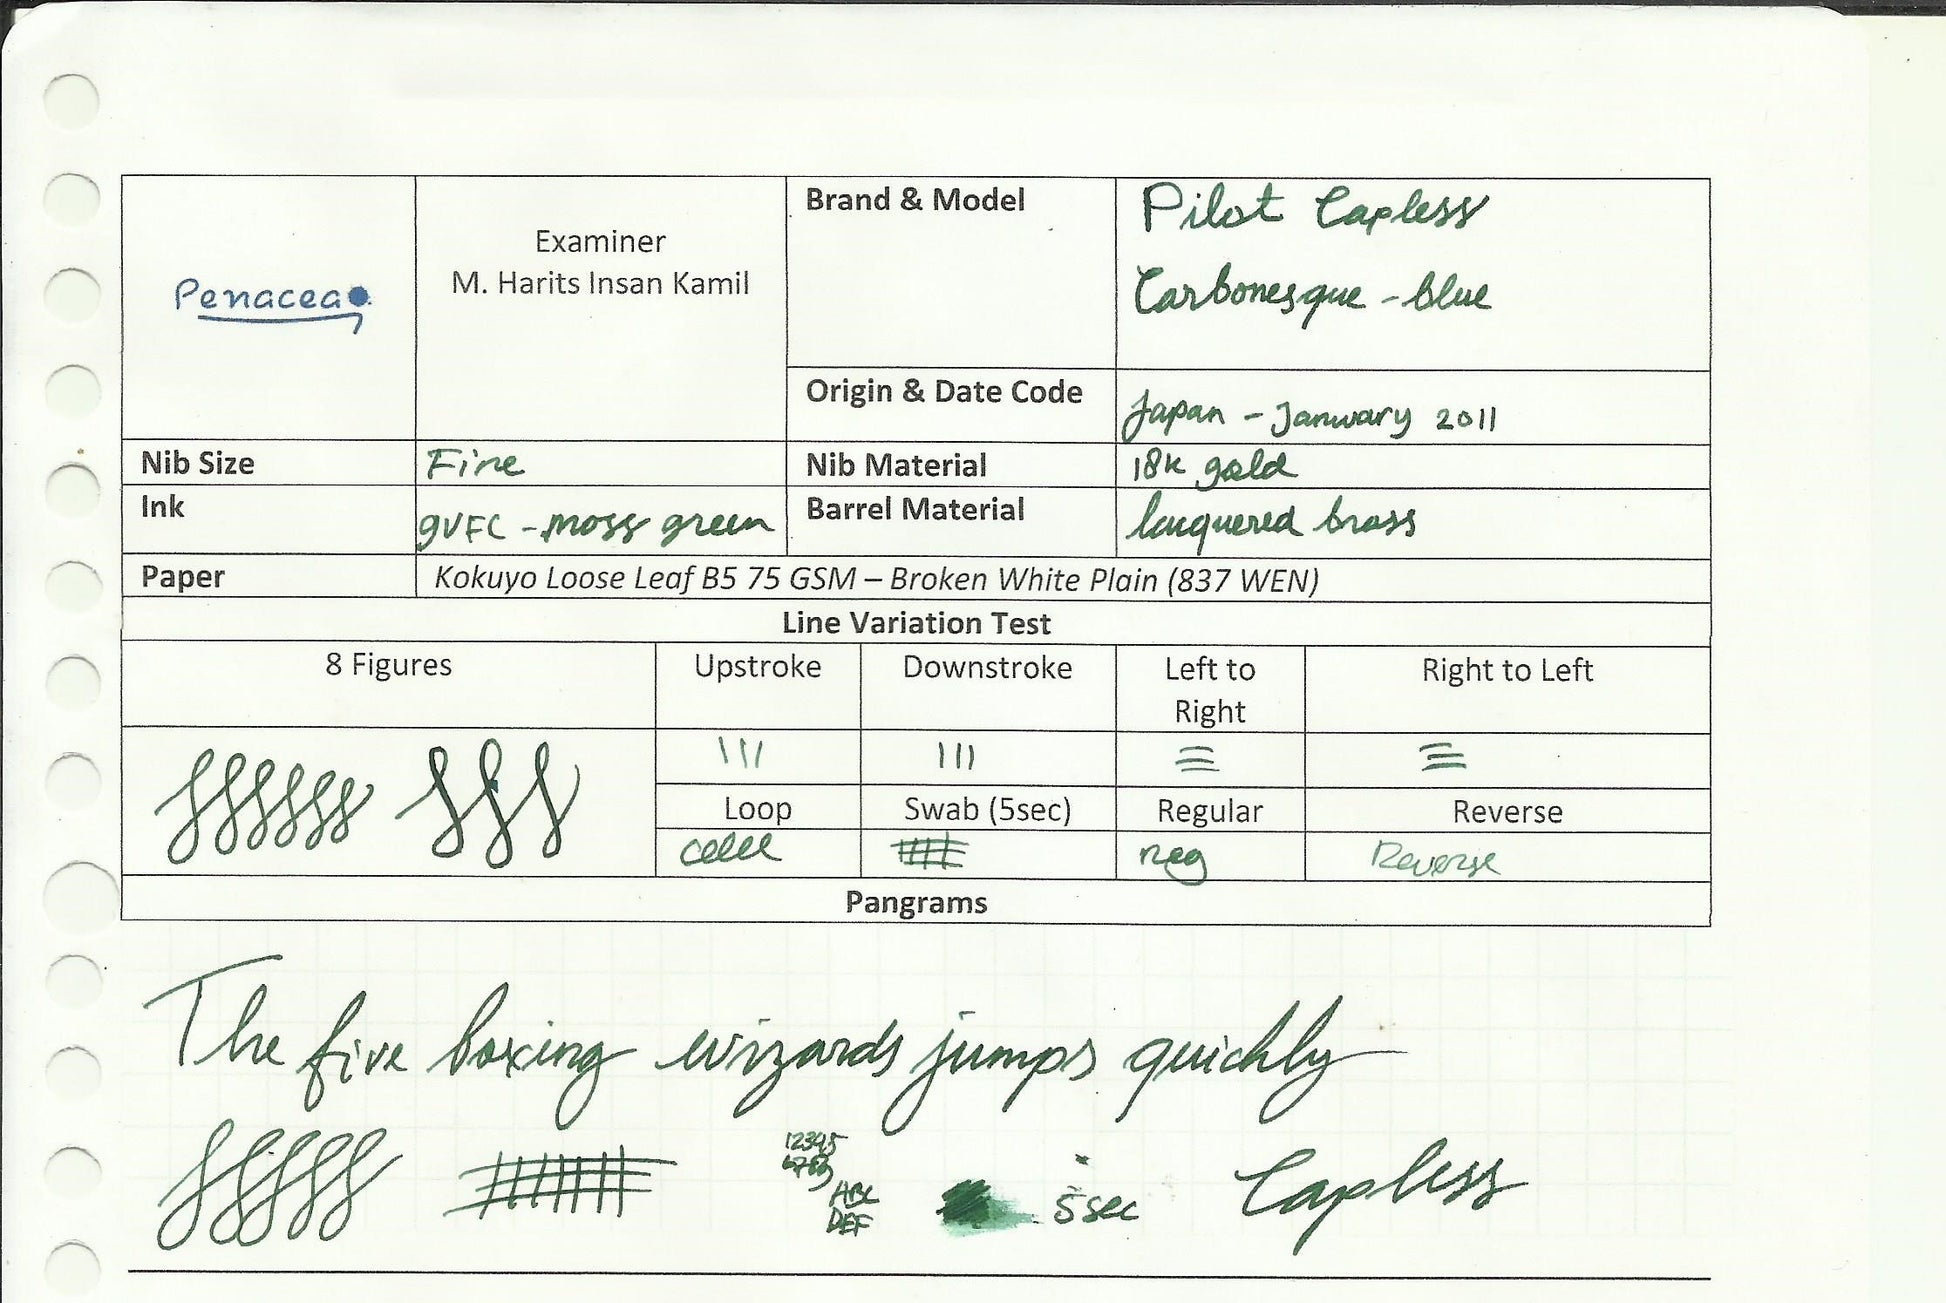 Penacea
Examiner
M. Harits Insan Kamil
Brand & Model
Pilot Capless
Carbonesque - blue
Origin & Date Code
Japan - January 2011
Nib Size
Fine
Nib Material
18k gold
Ink
gVFC - moss green
Barrel Material
lacquered brass
Paper
Kokuyo Loose Leaf B5 75 GSM – Broken White Plain (837 WEN)
Line Variation Test
8 Figures
Upstroke
Downstroke
Left to
Right
Right to Left
Loop
Swab (5sec)
Regular
Reverse
reg
Reverse
Pangrams
The five boxing wizards jumps quickly
12345
ABC
DEF
5sec
Capless